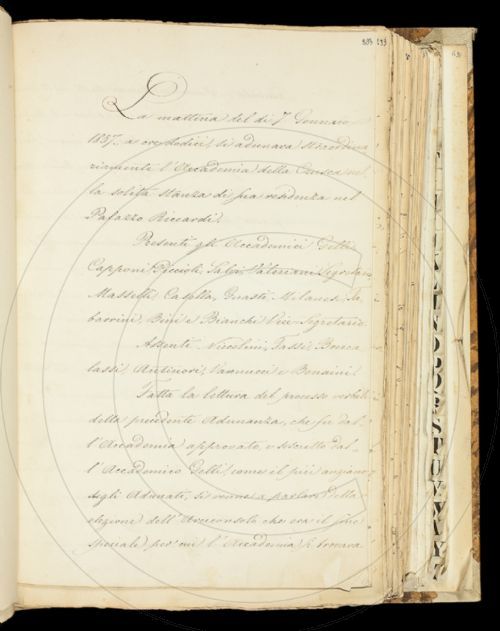 La mattina del dì 7 Gennaio
1857. a ore dodici si adunava straordina
riamente l'Accademia della Crusca nel
la solita stanza di sua residenza nel
Palazzo Riccardi.
Presenti gli Accademici Gelli
Capponi, Piccioli, Salvi, Valeriani Segretario
Masselli, Casella, Guasti, Milanesi, Ta
barrini, Bini e Bianchi Vice-Segretario.
Assenti Niccolini, Tassi, Bonca
lassi, Antinori, Vannucci e Bonaini.
Fatta la lettura del processo verbale
della precedente Adunanza, che fu dal
l'Accademia approvato, e soscritto dal
l'Accademico Gelli come il più anziano
degli Adunati, si venne a parlare della
elezione dell'Arciconsolo che era il fine
speciale per cui l'Accademia si trovava